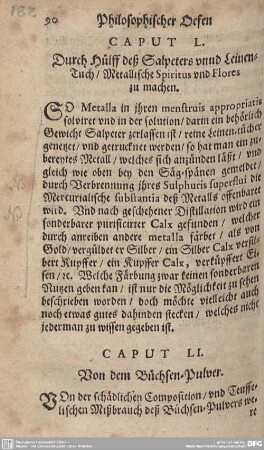 90 Philosophischer Oefen
CAPUT L.
Durch Hülff deß Salpeters vnnd Leinen-
Tuch / Metallische Spiritus vnd Flores
zu machen.
SO Metalla in ihren menstruis appropriatis
solviret vnd in der solution / darin ein behörlich
Gewicht Salpeter zerlassen ist / reine Leinen-tücher
genetzet / vnd getrucknet werden / so hat man ein zu-
bereytes Metall / welches sich anzünden läßt / vnd
gleich wie oben bey den Säg-spänen gemeldet /
durch Verbrennung ihres Sulphuris superflui die
Mercurialische substantia deß Metalls offenbaret
wird. Vnd nach geschehener Distillation wird ein
sonderbarer purificirter Calx gefunden / welcher
durch anreiben andere metalla färbet / als von
Gold / vergüldet er Silber / ein Silber Calx versil-
bert Kupffer / ein Kupffer Calx, verküpffert Ei-
sen / ꝛc. Welche Färbung zwar keinen sonderbaren
Nutzen geben kan / ist nur die Möglichkeit zu sehen
beschrieben worden / doch möchte vielleicht auch
noch etwas gutes dahinden stecken / welches nicht
jederman zu wissen gegeben ist.
CAPUT LI.
Von dem Büchsen-Pulver.
VOn der schädlichen Composition / vnd Teuffe-
lischen Mißbrauch deß Büchsen-Pulvers we-
re